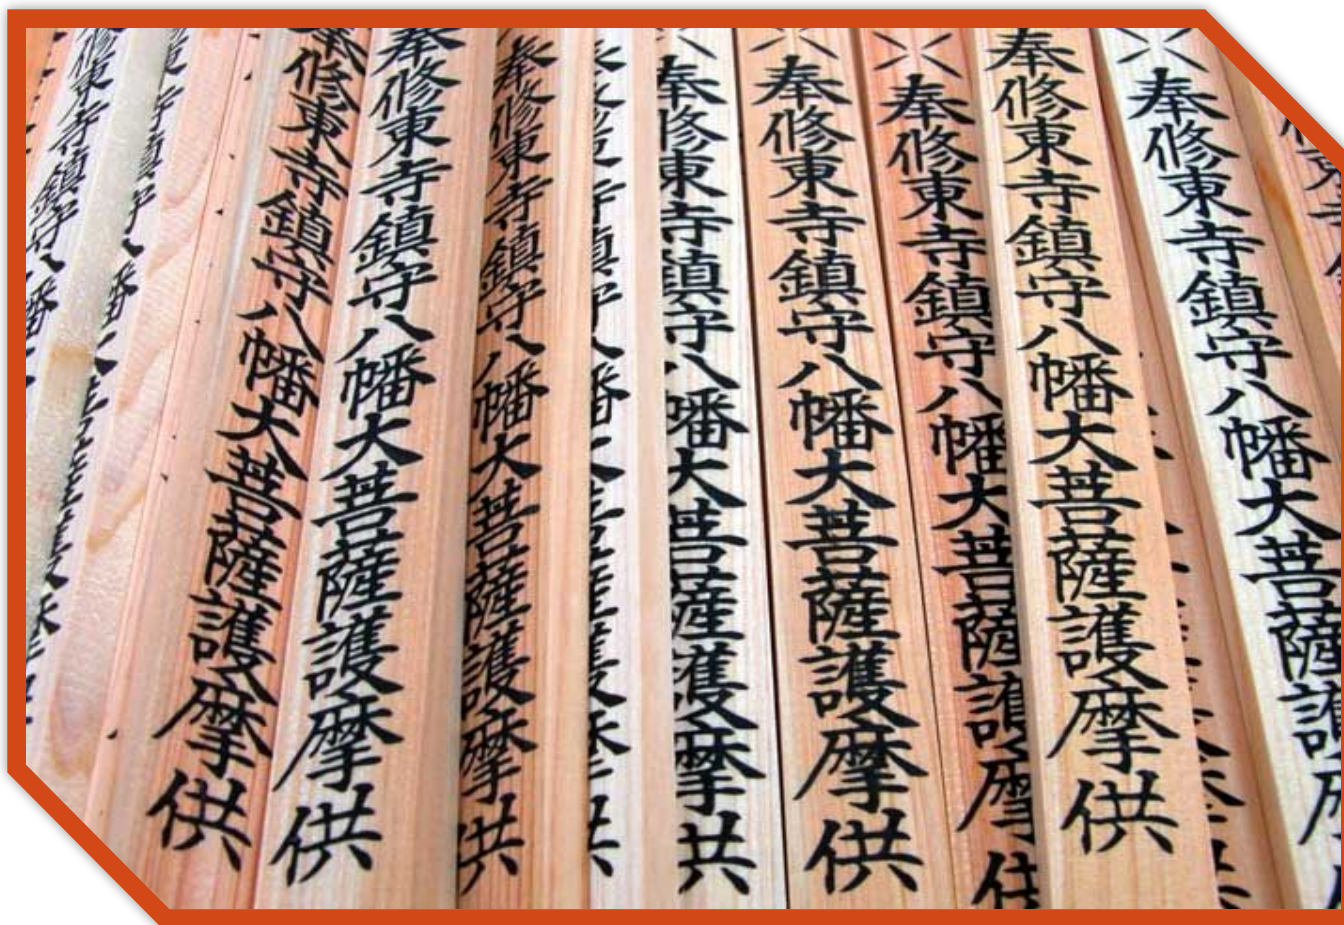 奉修東寺鎮守八幡大菩薩護
奉修東寺鎮守八幡大菩薩護摩供
奉修東寺鎮守八幡大菩薩護摩供
奉修東寺鎮守八幡大菩薩護摩供
奉修東寺鎮守八幡大菩薩護摩供
奉修東寺鎮守八幡大菩薩護摩供
奉修東寺鎮守八幡大菩薩護摩供
奉修東寺鎮守八幡大菩薩護摩供
修東寺鎮守八幡